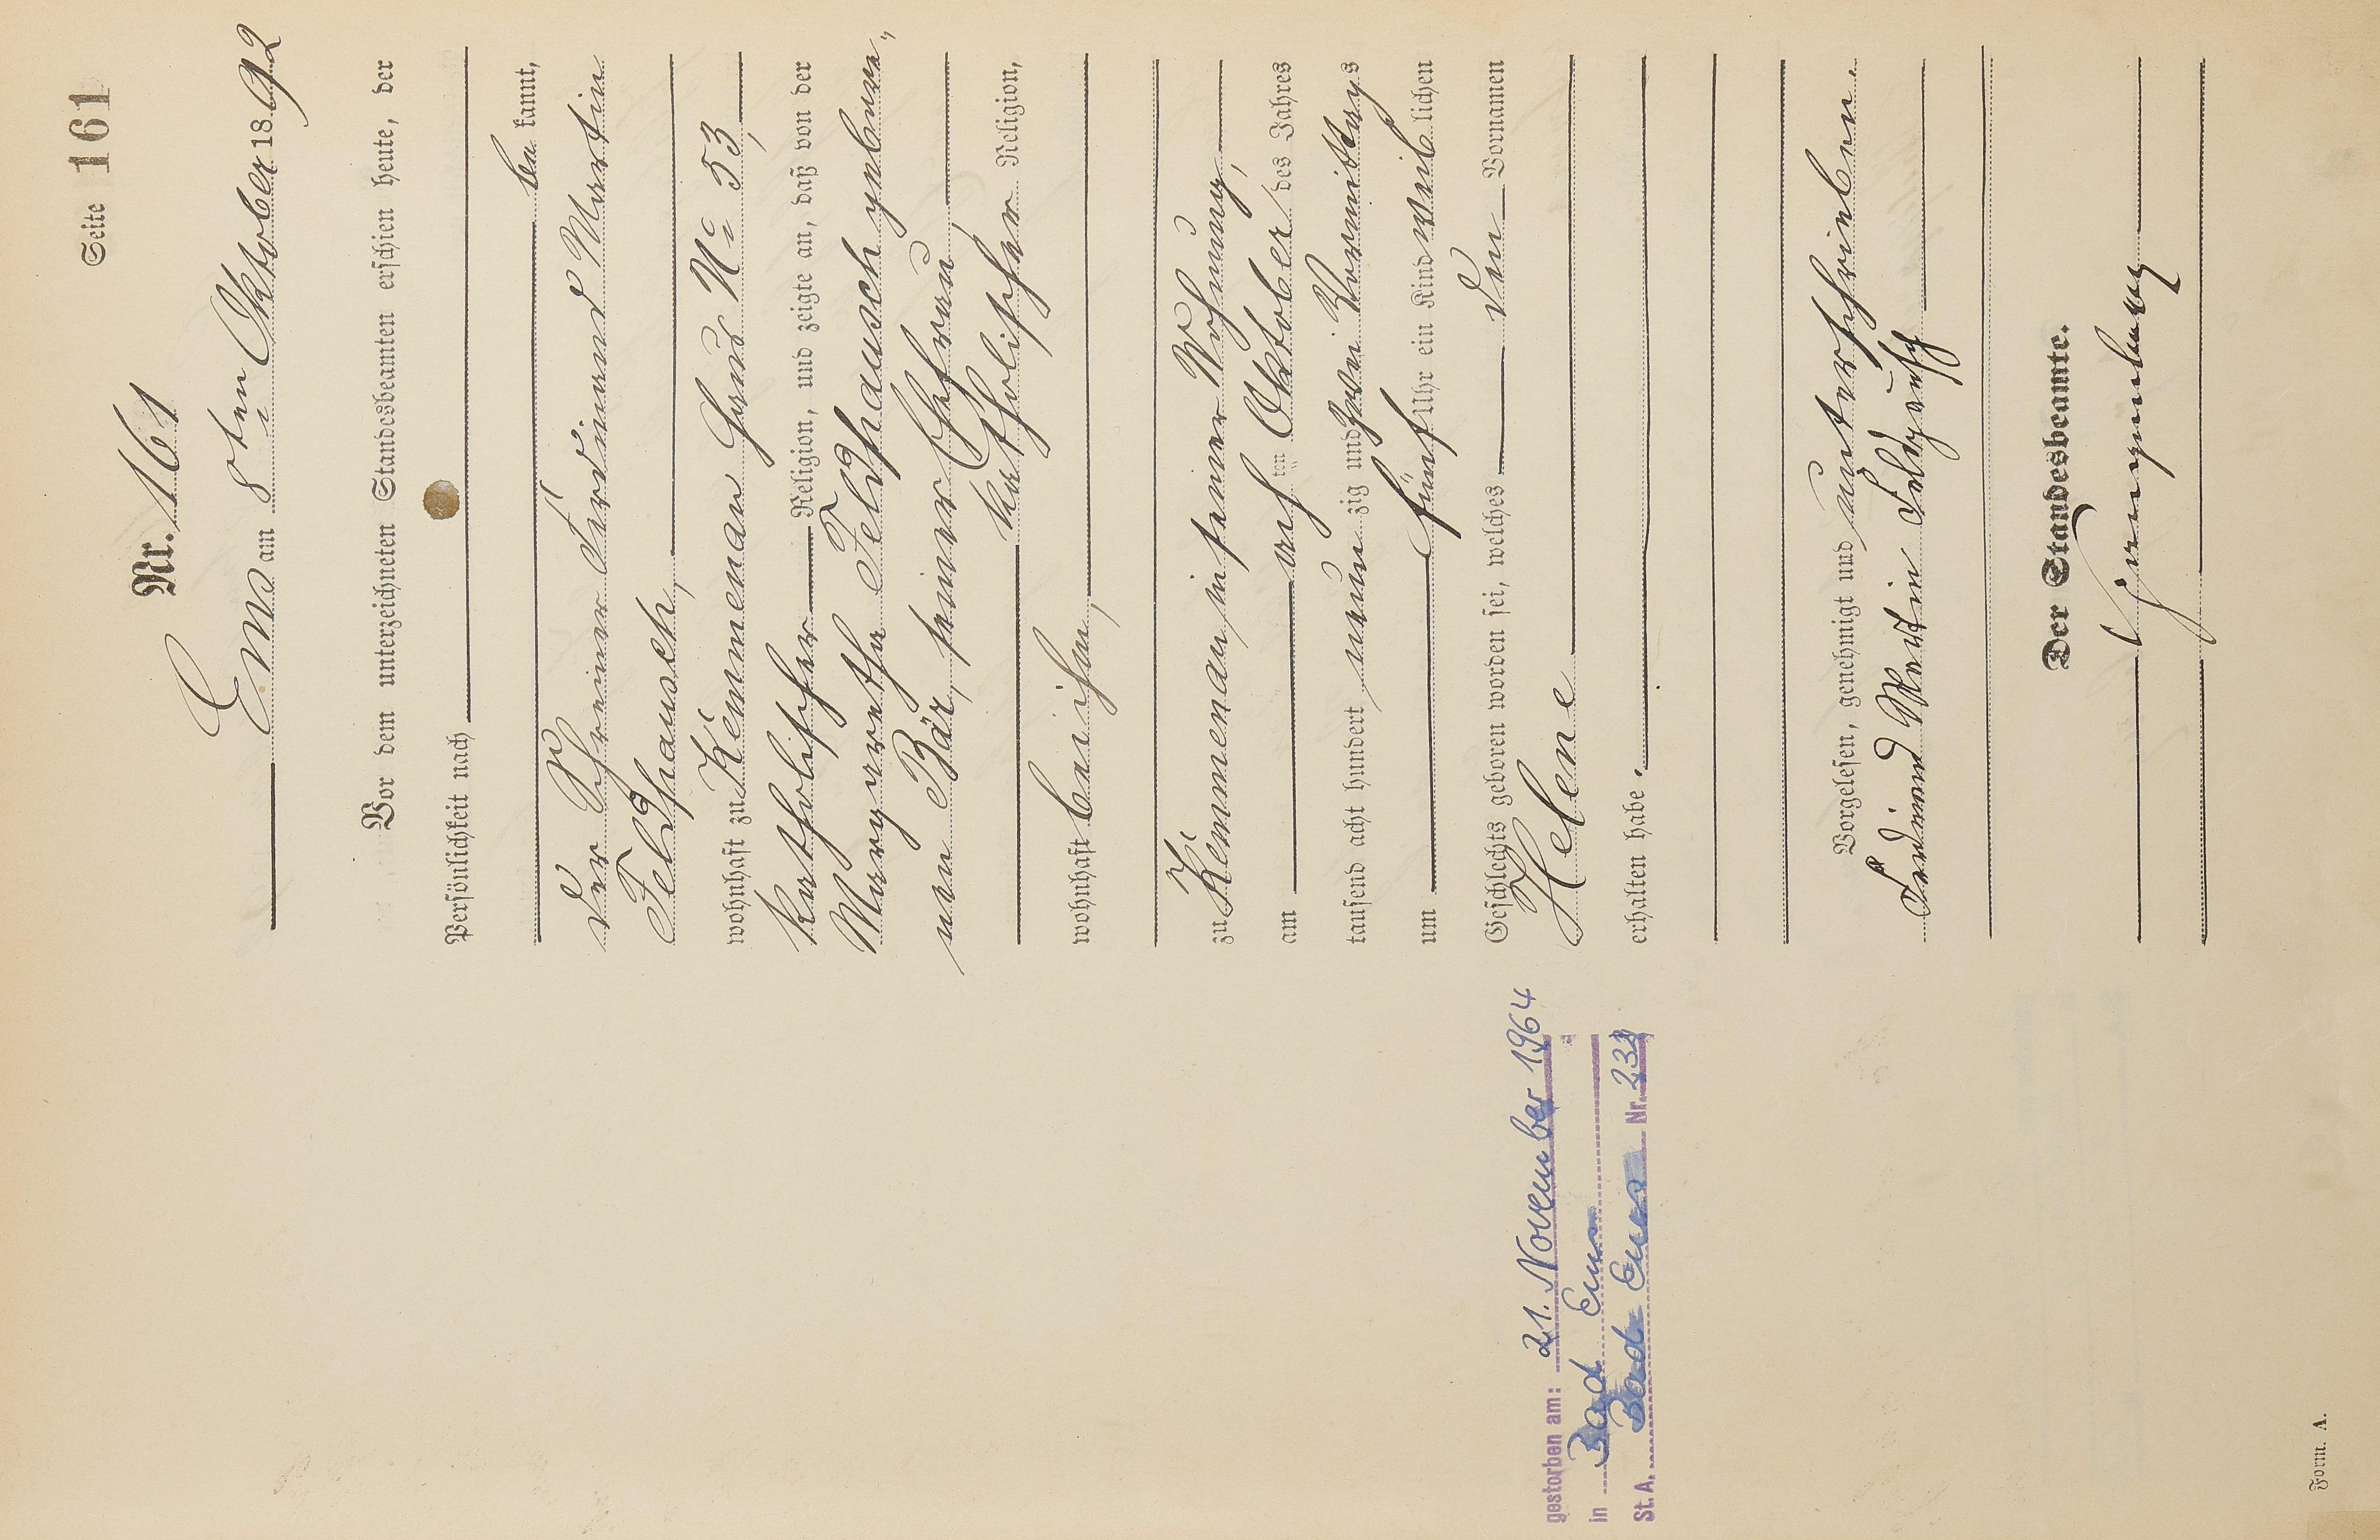 Seite 161
Nr. 161
Ems am 8ten Oktober 1892
Vor dem unterzeichneten Standesbeamten erschien heute, der
Persönlichkeit nach
be kannt,
der Schreiner Ferdinand Martin
Feldhausch,
wohnhaft zu Kemmenau Haus No 53,
katholischer Religion, und zeigte an, daß von der
Margarethe Feldhausch gebore-
nen Bär, seiner Ehefrau,
katholischer Religion,
wohnhaft bei ihm,
zu Kemmenau in seiner Wohnung,
am acht ten Oktober des Jahres
tausend acht hundert neun zig und zwei Vormittags
um fünf Uhr ein Kind weib lichen
Geschlechts geboren worden sei, welches den Vornamen
Helene
erhalten habe.
Vorgelesen, genehmigt und unterschrieben.
Ferdinand Martin Feldhausch
Der Standesbeamte.
gestorben am: 21. November 1964
in Bad Ems
St. A. Bad Ems Nr.
Form. A.